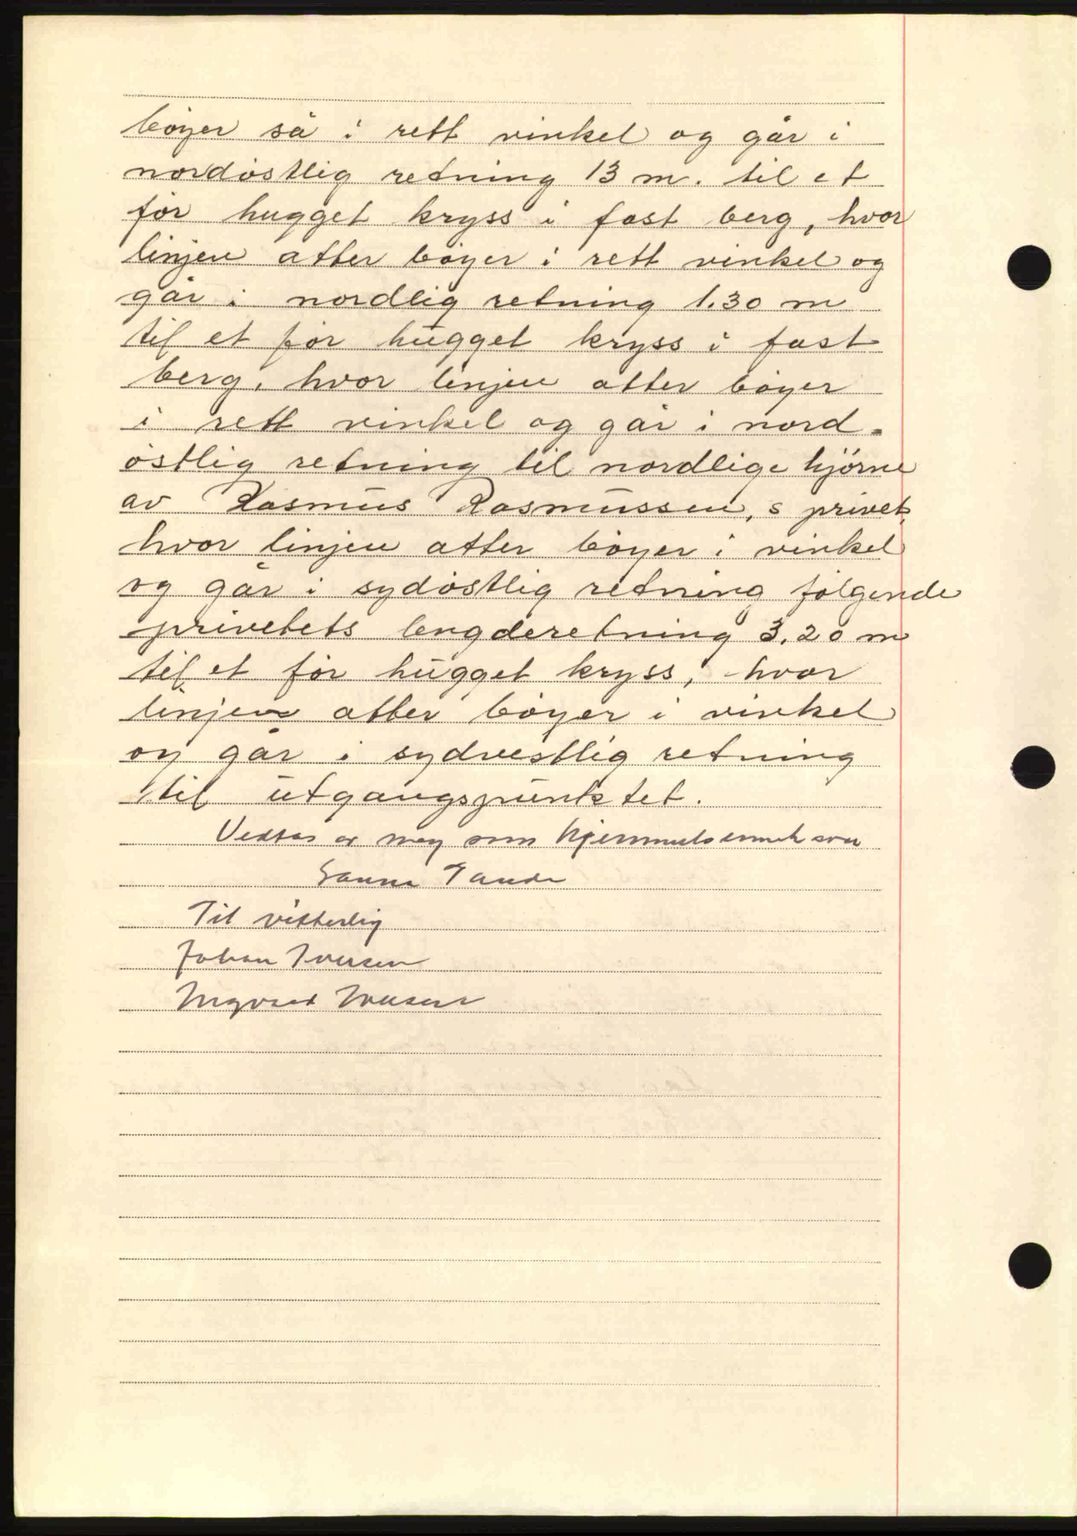 bøyer så i rett vinkel og går i
nordøstlig retning 13 m. til et
før hugget kryss i fast berg, hvor
linjen atter bøyer i rett vinkel og
går i nordlig retning 1.30 m
til et før hugget kryss i fast
berg, hvor linjen atter bøyer
i rett vinkel og går i nord-
østlig retning til nordlige hjørne
av Rasmus Rasmussen,s privet,
hvor linjen atter bøyer i vinkel
og går i sydøstlig retning følgende
privetets lengderetning 3.20 m
til et før hugget kryss, hvor
linjen atter bøyer i vinkel
og går i sydvestlig retning
til utgangspunktet.
Vedtas av meg som hjemmelsinnehaver
Tande
Til vitterlig
Johan Iversen
Ingvald Iversen